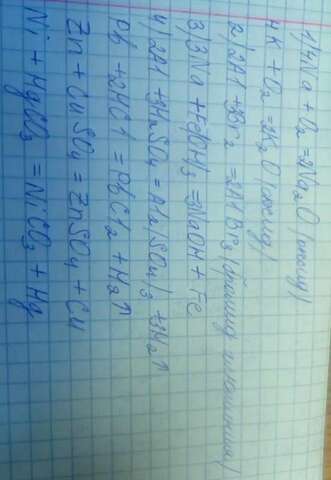 1) 4Na + O₂ = 2Na₂O (оксид)
4K + O₂ = 2K₂O (оксид)
2) 2Al + 3Br₂ = 2AlBr₃ (бромид алюминия)
3) 3Na + Fe(OH)₃ = 3NaOH + Fe
4) 2Al + 3H₂SO₄ = Al₂(SO₄)₃ + 3H₂↑
Pb + 2HCl = PbCl₂ + H₂↑
Zn + CuSO₄ = ZnSO₄ + Cu
Ni + HgCO₃ = NiCO₃ + Hg